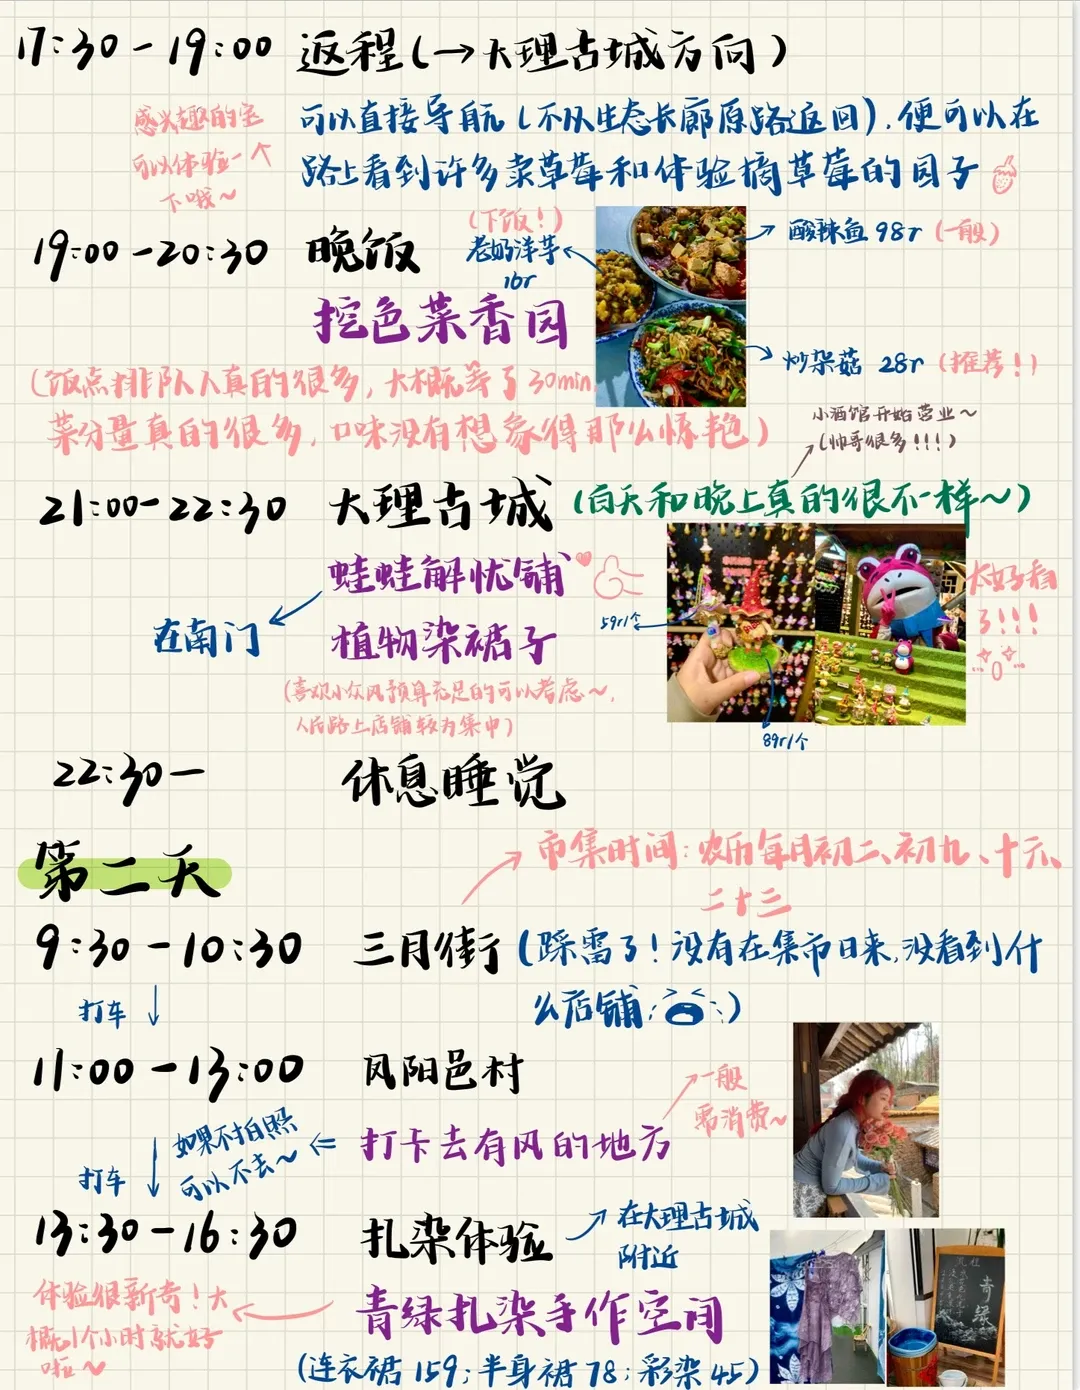 17:30-19:00 返程(→大理古城方向)
感兴趣的宝
可以体验一
下哦~
可以直接导航(不从生态长廊原路返回),便可以在
路上看到许多卖草莓和体验摘草莓的园子
19:00-20:30 晚饭
(下饭!)
老奶洋芋
16r
酸辣鱼 98r (一般)
挖色菜香园
炒杂菇 28r (推荐!)
(饭点排队人真的很多,大概等了30min,
菜分量真的很多,口味没有想象得那么惊艳)
小酒馆开始营业~
(帅哥很多!!!)
21:00-22:30 大理古城 (白天和晚上真的很不一样~)
蛙蛙解忧铺
在南门
植物染裙子
(喜欢小众风预算充足的可以考虑~,
人民路上店铺较为集中)
59r1个
89r1个
太好看
了!!!
22:30- 休息睡觉
第二天
市集时间:农历每月初二、初九、十六、
二十三
9:30-10:30 三月街 (踩雷了!没有在集市日来,没看到什
么店铺)
打车
11:00-13:00 凤阳邑村
一般
需消费~
打卡去有风的地方
如果不拍照
可以不去~
打车
13:30-16:30 扎染体验
在大理古城
附近
体验很新奇!大
概1个小时就好
啦~
青绿扎染手作空间
(连衣裙159;半身裙78;彩染45)
青
绿